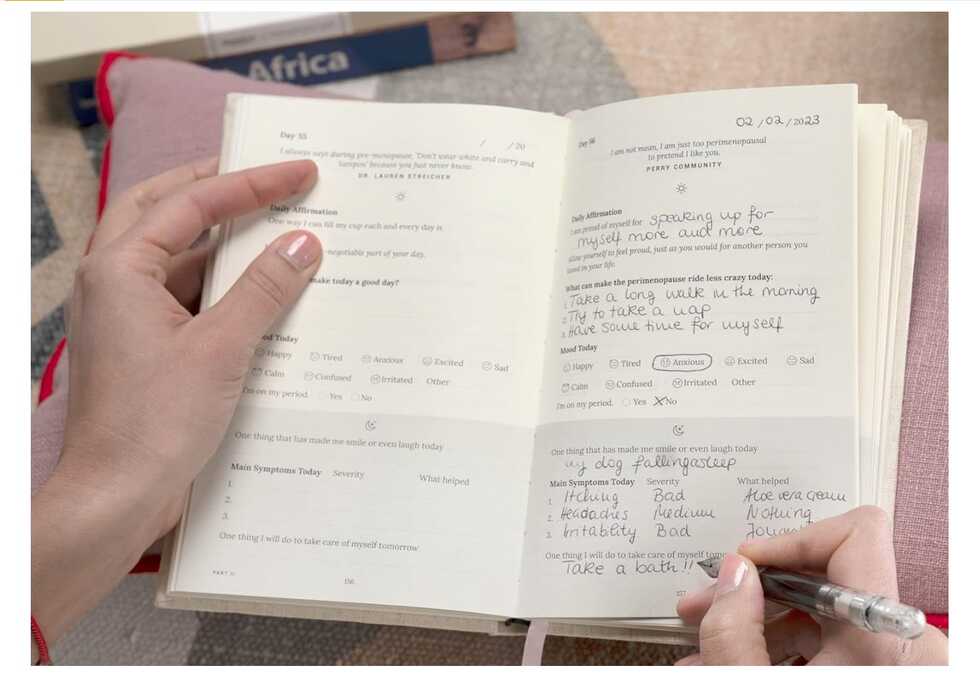 Africa
Day 55
/ /20
I always says during pre-menopause, 'Don't wear white and carry and
tampon' because you just never know.
DR. LAUREN STREICHER
Daily Affirmation
One way I can fill my cup each and every day is
-negotiable part of your day.
make today a good day?
od Today
Happy Tired Anxious Excited Sad
Calm Confused Irritated Other
I'm on my period. Yes No
One thing that has made me smile or even laugh today
Main Symptoms Today Severity What helped
1.
2.
3.
One thing I will do to take care of myself tomorrow
PART II
156
02/02/2023
Day 56
I am not mean, I am just too perimenopausal
to pretend I like you.
PERRY COMMUNITY
Daily Affirmation
I am proud of myself for speaking up for
myself more and more
Allow yourself to feel proud, just as you would for another person you
loved in your life.
What can make the perimenopause ride less crazy today:
1. Take a long walk in the morning
2. Try to take a nap
3. Have some time for myself
Mood Today
Happy Tired Anxious Excited Sad
Calm Confused Irritated Other
I'm on my period. Yes No
One thing that has made me smile or even laugh today
my dog falling asleep
Main Symptoms Today Severity What helped
1. Itching Bad Aloe vera cream
2. Headaches Medium Nothing
3. Irritability Bad
One thing I will do to take care of myself tomo
Take a bath!!
157